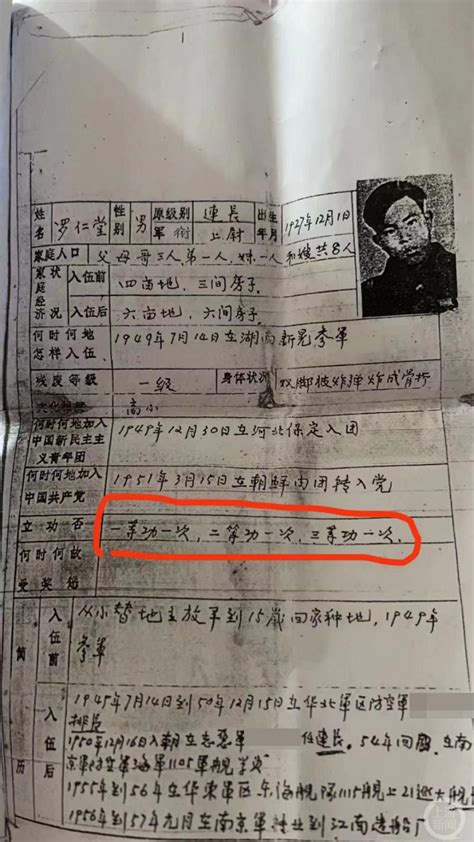 姓名 罗仁堂 性别 男 原级别 連長 出生年月 1927年12月1日
軍衔 上尉
家庭人口 父母哥三人,弟一人,妹一人和嫂共8人
家庭经济状况 入伍前 四亩地,三间房子.
入伍后 六亩地,六间房子.
何时何地怎样入伍 1949年7月14日在湖南新晃参軍
残废等级 一级 身体状况 双脚被炸弹炸成骨折
高小
何时何地加入中国新民主主义青年团 1949年12月30日在河北保定入团
何时何地加入中国共产党 1951年3月15日在朝鮮由团转入党
立功否 一等功一次,二等功一次,三等功一次.
何时何故受奖惩
简历 入伍前 从小替地主放羊到15歲回家种地,1949年
参軍
入伍后 1949年7月14日到50年12月15日在华北軍区防空軍
排長
1950年12月16日入朝在志愿軍 任連長.54年回國,在南
京軍 防空軍海軍1105軍舰
1955年到56年在华東軍区东海舰隊1115舰上21巡大舰
1956年到57年元月在南京軍 转业到江南造船厂
上游新闻